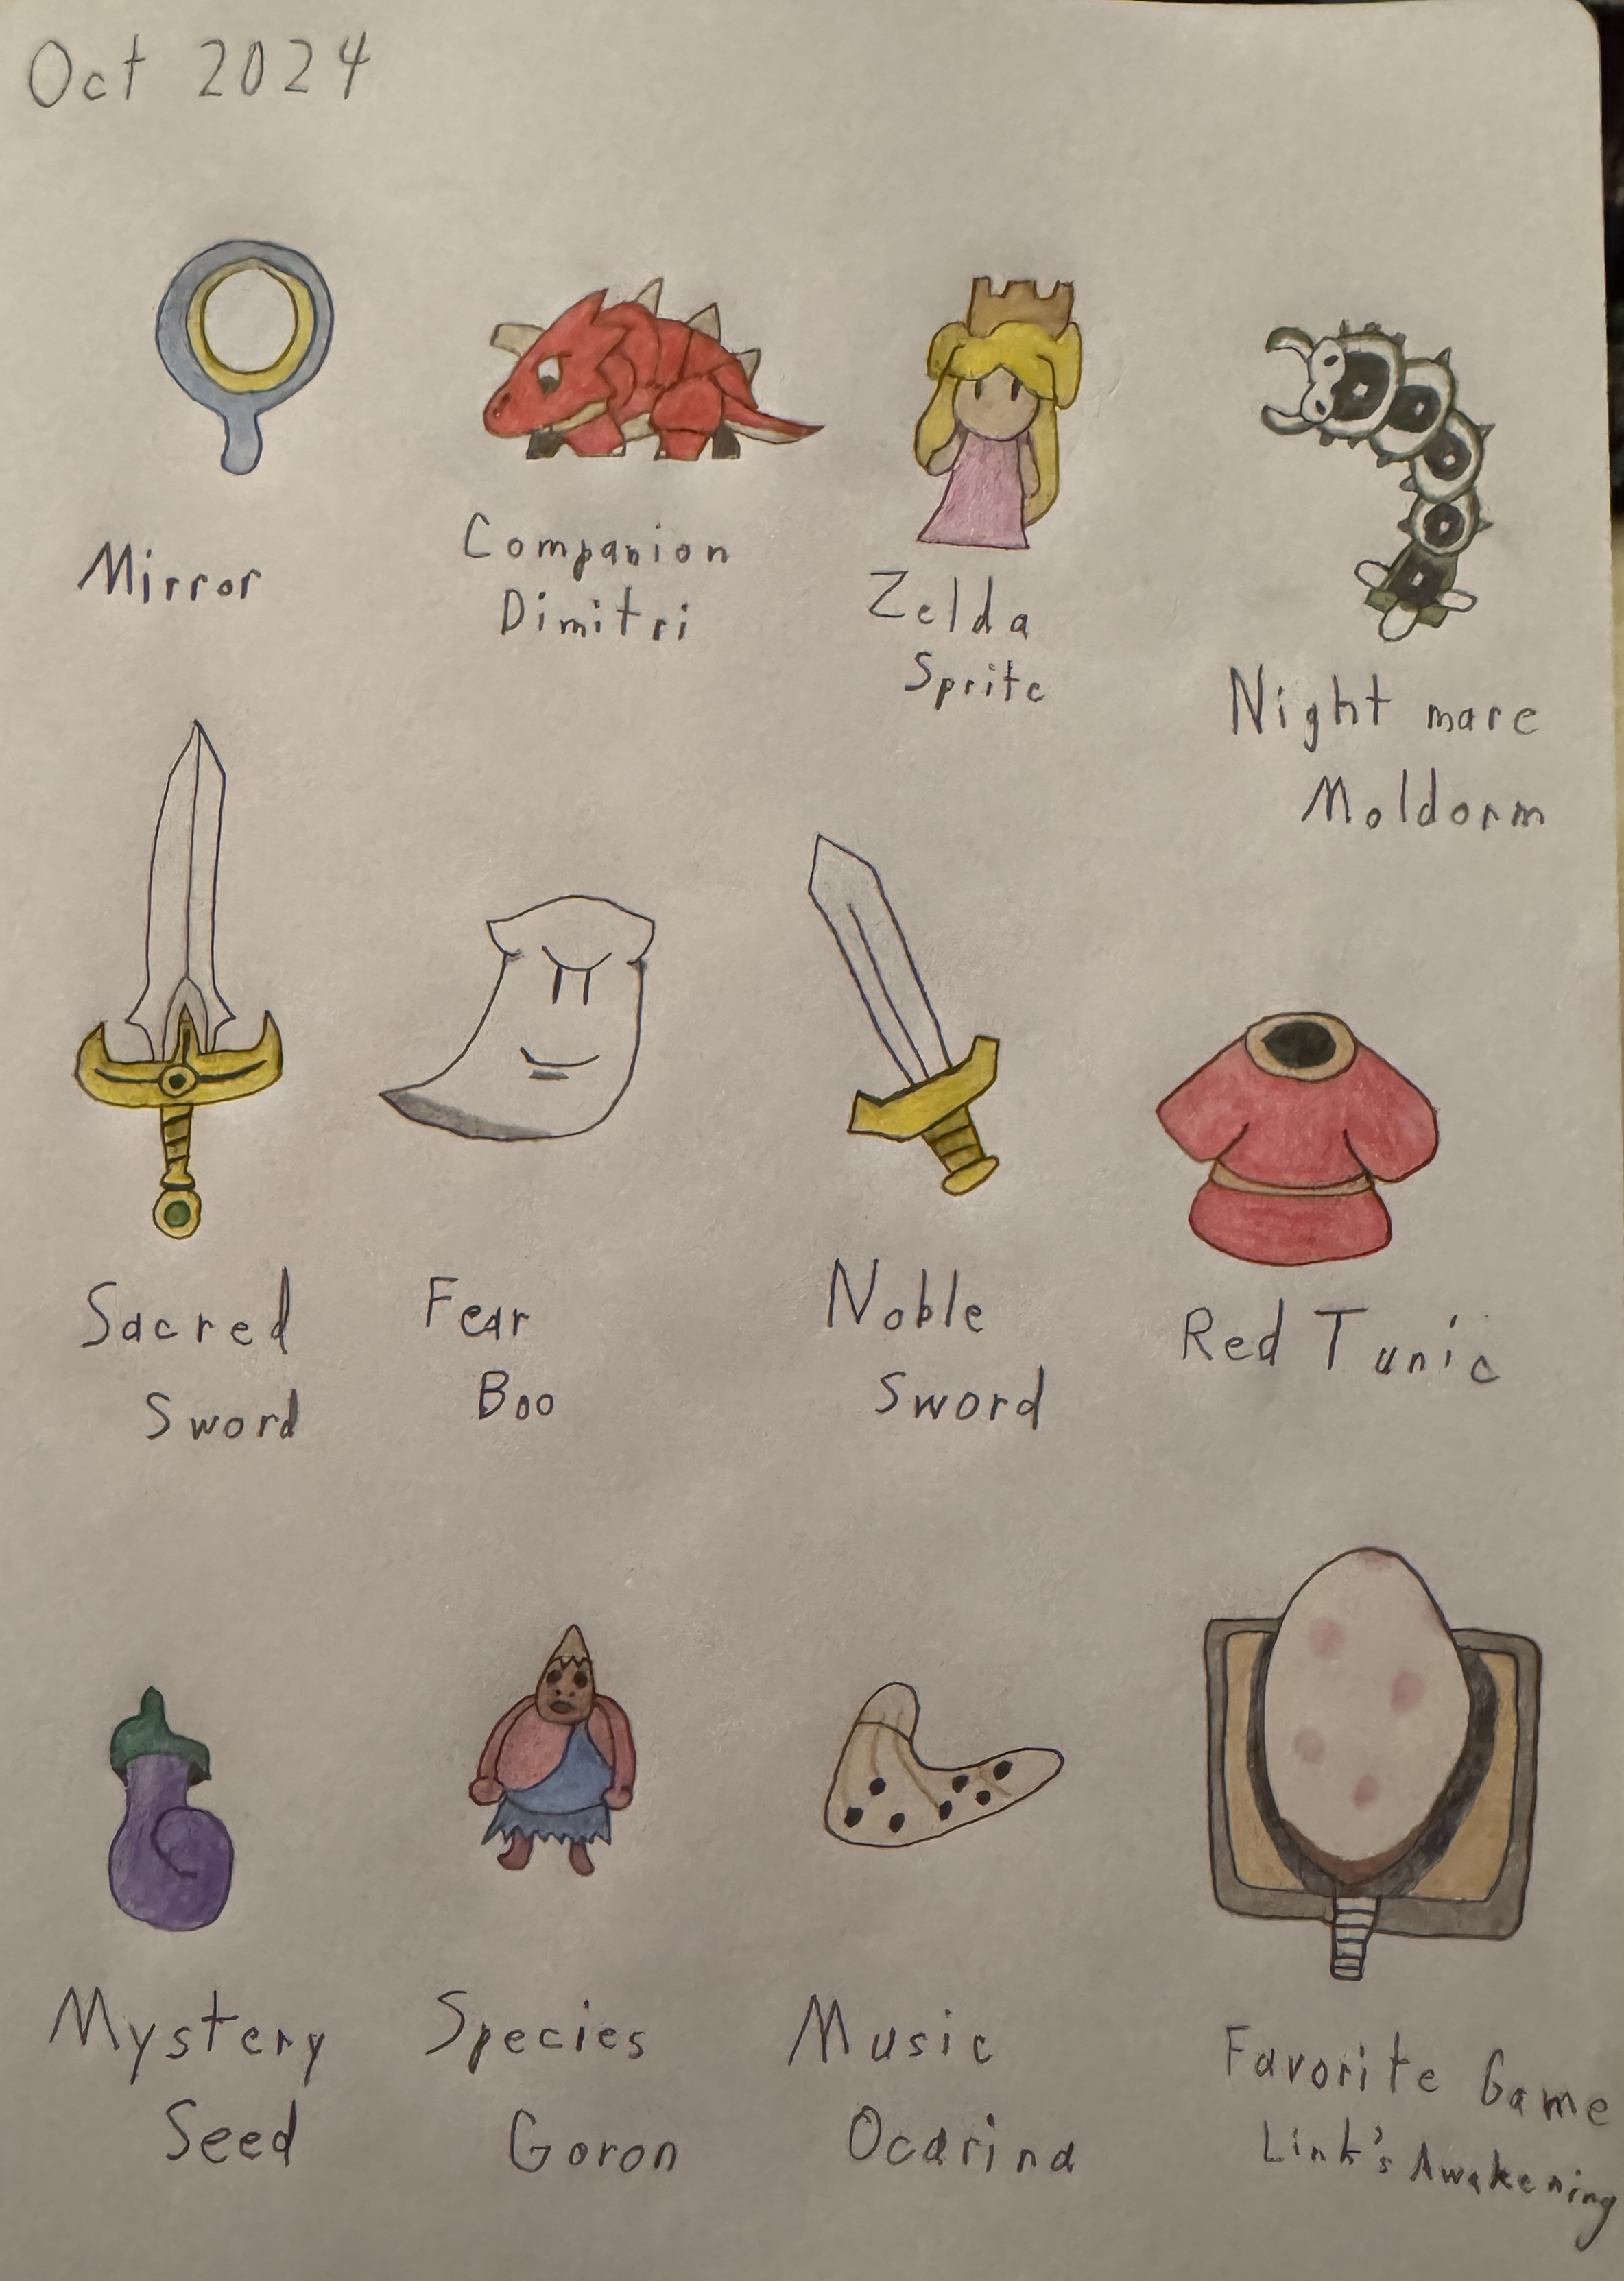 Oct 2024
Mirror
Companion
Dimitri
Zelda
Sprite
Night mare
Moldorm
Sacred
Sword
Fear
Boo
Noble
Sword
Red Tunic
Mystery
Seed
Species
Goron
Music
Ocarina
Favorite Game
Link's Awakening